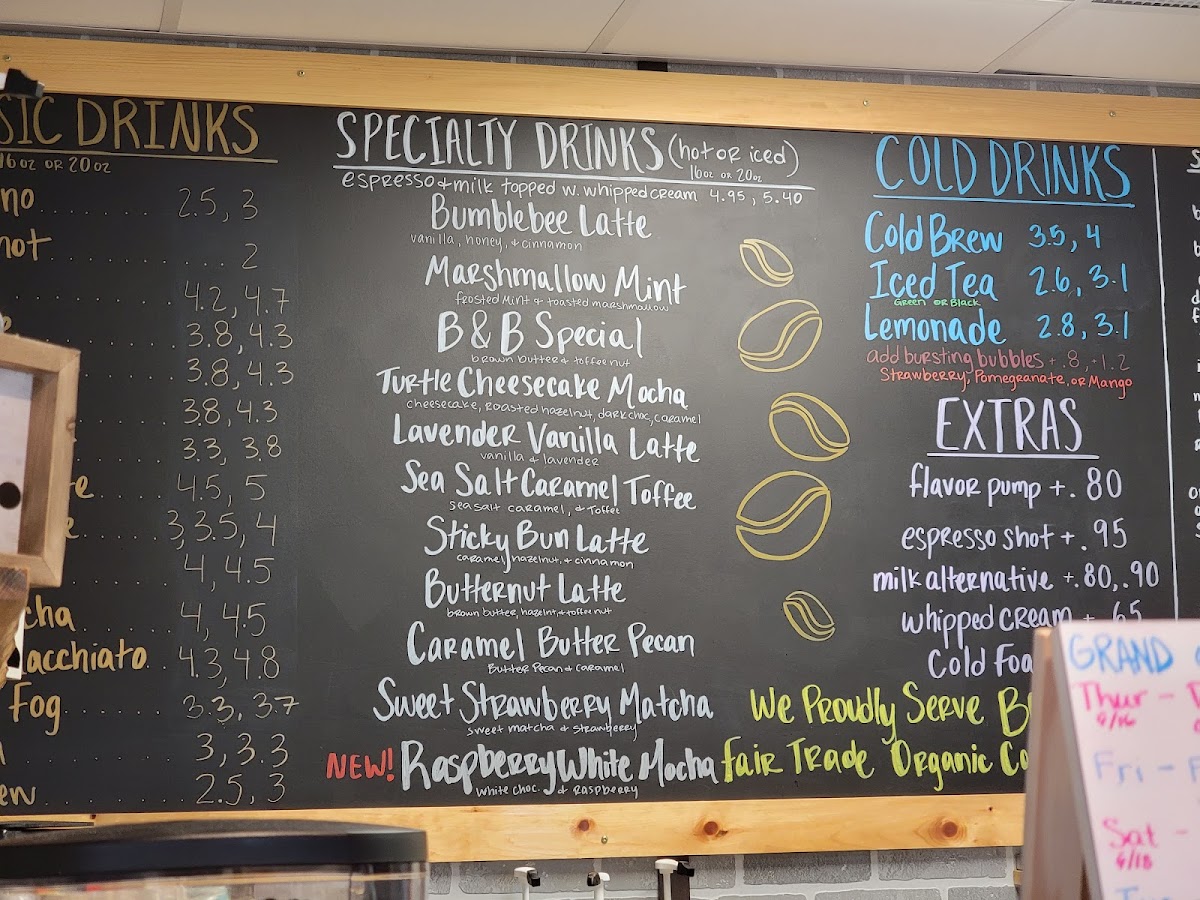 SIC DRINKS
16 oz OR 20 oz
no ........ 2.5, 3
hot ........ 2
........ 4.2, 4.7
........ 3.8, 4.3
........ 3.8, 4.3
........ 3.8, 4.3
........ 3.3, 3.8
e ........ 4.5, 5
........ 3, 3.5, 4
........ 4, 4.5
cha ........ 4, 4.5
acchiato .. 4.3, 4.8
Fog ........ 3.3, 3.7
........ 3, 3.3
ew ........ 2.5, 3
SPECIALTY DRINKS (hot or iced)
16 oz OR 20 oz
espresso & milk topped w. whipped cream 4.95, 5.40
Bumblebee Latte
vanilla, honey, & cinnamon
Marshmallow Mint
frosted mint & toasted marshmallow
B & B Special
brown butter & toffee nut
Turtle Cheesecake Mocha
cheesecake, roasted hazelnut, dark choc, caramel
Lavender Vanilla Latte
vanilla & lavender
Sea Salt Caramel Toffee
sea salt caramel, & toffee
Sticky Bun Latte
caramel, hazelnut, & cinnamon
Butternut Latte
brown butter, hazelnt, & toffee nut
Caramel Butter Pecan
Butter Pecan & caramel
Sweet Strawberry Matcha
sweet matcha & strawberry
NEW! Raspberry White Mocha
white choc. & raspberry
COLD DRINKS
Cold Brew 3.5, 4
Iced Tea 2.6, 3.1
Green or Black
Lemonade 2.8, 3.1
add bursting bubbles +.8, +1.2
Strawberry, Pomegranate, or Mango
EXTRAS
flavor pump +.80
espresso shot +.95
milk alternative +.80, .90
whipped cream +.65
Cold Foa
We Proudly Serve B
Fair Trade Organic Co
GRAND
Thur -
9/16
Fri - F
Sat -
9/18